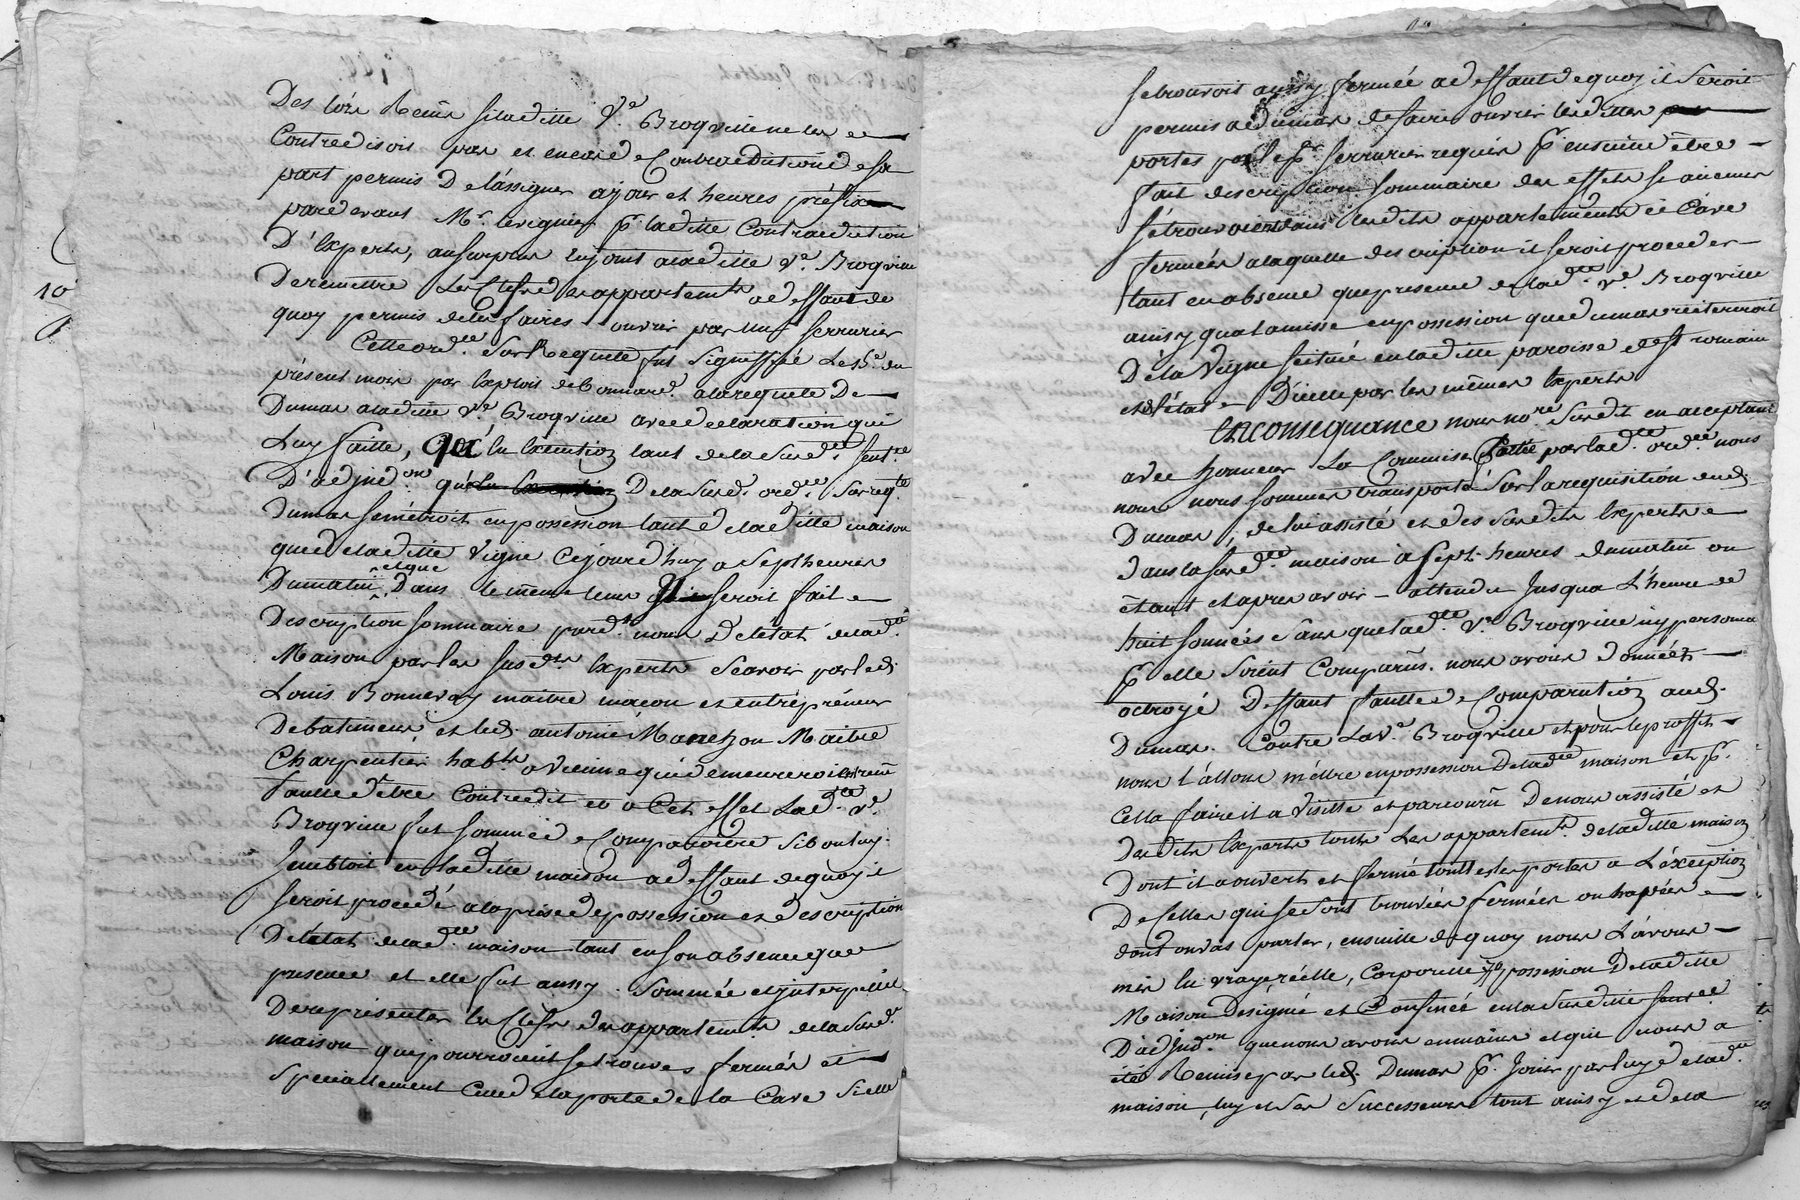 Des lors Remis si laditte Ve. Broqville ne les
Contredisoit pas et en cas de Contradictions de sa
part permis De l'assigner a jour et heures préfix
pardevant Mr. leviguier pr. laditte Contradiction
D'Experts, au surplus Enjoint a laditte Ve. Broqville
De remettre Les Clefs des appartemts a deffaut de
quoy permis de les faires ouvrir par un serrurier
Cette ordce. sur Requette fut signiffiée Le 5e. du
présent mois par Exploit de Bonnard a la requete De
Dumas a laditte Ve. Broqville avec declaration qui
Luy faitte, que En Execution tant de la susde. sentce
D'adjudon que De la susd. ordce. sur reqte
Dumas se mettroit en possession tant de laditte maison
que de laditte Vigne Cejourdhuy a sept heures
Du matin et que Dans le meme tems Il seroit fait
Description sommaire pard. nous De l'etat de lade.
Maison par les susdts Experts Scavoir par led.
Louis Bonnevay maitre macon et entrépréneur
De batiments et led. antoine Manchon Maitre
Charpentier habts a Vienne qui demeureroient
fautte d'être Contredit et a Cet effet Lade. Ve.
Broqville fut sommée de Comparoitre si bon luy
sembloit en laditte maison a deffaut de quoy il
seroit procédé a la prise de possession et description
De l'état de lade. maison tant en son absence que
presence et elle fut aussy sommée et interpellée
De representer les Clefs des appartemts de la susde.
maison qui pourroient se trouver fermés et
specialement Celle de la porte de la Cave si elle
10
se trouvoit aussy fermée a deffaut de quoy il seroit
permis a Dumas de faire ouvrir lesdittes
portes par le pr. serrurier requis pr. ensuitte être
fait description sommaire des effets si aucuns
se trouvoient dans lesdits appartements et Cave
fermées a laquelle description il seroit proceder
tant en absence que presence de lade. Ve. Broqville
ainsy qu'a la misse en possession que Dumas réitereroit
De la Vigne scituée en laditte paroisse de st romain
et de l'état D'icelle par les mêmes Experts
En consequance nous nore susdit en acceptant
avec honneur La Commise faitte par lade. ordce. nous
nous nous sommes transporté sur la requisition dud.
Dumas, de luy assisté et des susdits Experts
dans la susde. maison a sept heures du matin ou
étant et apres avoir attendu Jusqua L'heure de
huit sonnées sans que lade. Ve. Broqville ny personne
pr. elle soient Comparûs. nous avons donnés
octroyé Deffaut fautte de Comparution aud.
Dumas. Contre La ve. Broqville et pour le proffit
nous l'allons mêttre en possession De lade. maison et pr.
Cella faire il a Visitté et parcouru De nous assisté et
Desdits Experts touts Les appartemts. de laditte maison
Dont il a ouverts et fermé touttes les portes a L'exception
De Celles qui se sont trouvées fermées
dont on vas parler, ensuitte de quoy nous L'avons
mis En vraye, réelle, Corporelle possession De laditte
Maison Designée et Confinée en la susditte sentce
D'adjudon que nous avons en mains et qui nous a
été Remise par led. Dumas pr. Jouir par luy de lade.
maison, luy et ses successeurs tout ainsy et de la